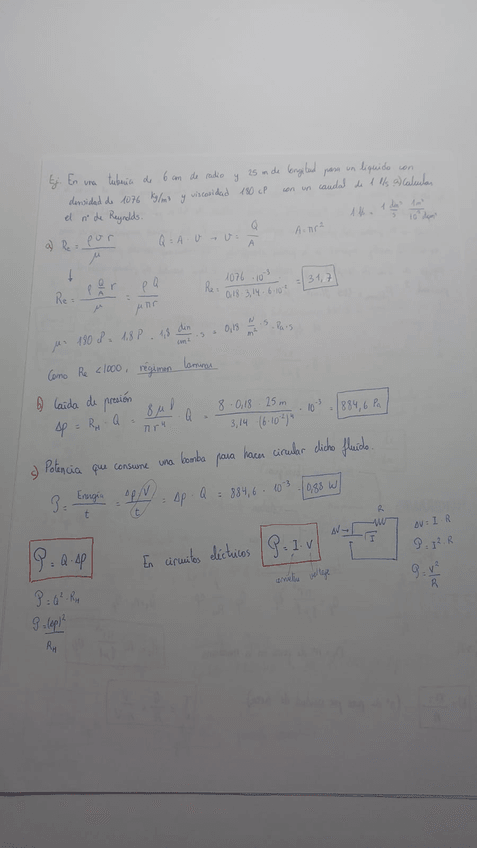 Ej En una tubería de 6 cm de radio y 25 m de longitud pasa un líquido con
densidad de 1076 kg/m³ y viscosidad 180 cP con un caudal de 1 l/s a) Calcular
el nº de Reynolds.
1 l/s = 1 dm³/s
a) Re = ρ v r / μ    Q = A v → v = Q/A    A = πr²
↓
Re = ρ Q/A r / μ = ρ Q / μ π r    Re = 1076 · 10⁻³ / 0,18 · 3,14 · 6·10⁻² = 31,7
μ = 180 cP = 1,8 P = 1,8 din/cm² · s = 0,18 N/m² · s = Pa·s
Como Re < 1000, régimen laminar
b) Caída de presión
Δp = R_H · Q = 8 μ l / π r⁴ · Q = 8 · 0,18 · 25 m / 3,14 · (6·10⁻²)⁴ · 10⁻³ = 884,6 Pa
c) Potencia que consume una bomba para hacer circular dicho fluido.
P = Energía / t = Δp V / t = Δp · Q = 884,6 · 10⁻³ = 0,88 W
P = Q · Δp    En circuitos eléctricos    P = I · V    ΔV    I    R    ΔV = I · R
P = I² · R
voltaje
P = V² / R
P = Q² · R_H
P = (Δp)² / R_H